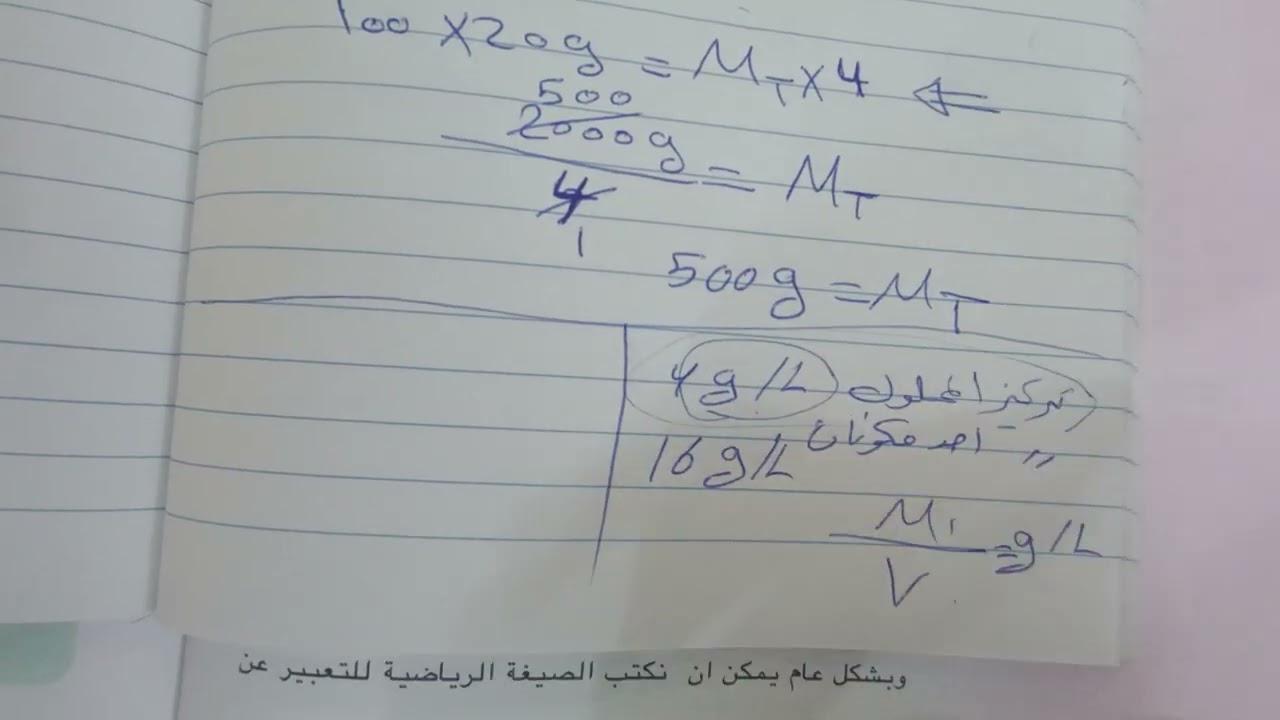 100 X 20g = M_T X 4 ⇐
500
2000g = M_T
4
1
500g = M_T
تركيز المحلول 4g/L
〃 احد مكونات 16g/L
M₁
= g/L
V
وبشكل عام يمكن ان نكتب الصيغة الرياضية للتعبير عن